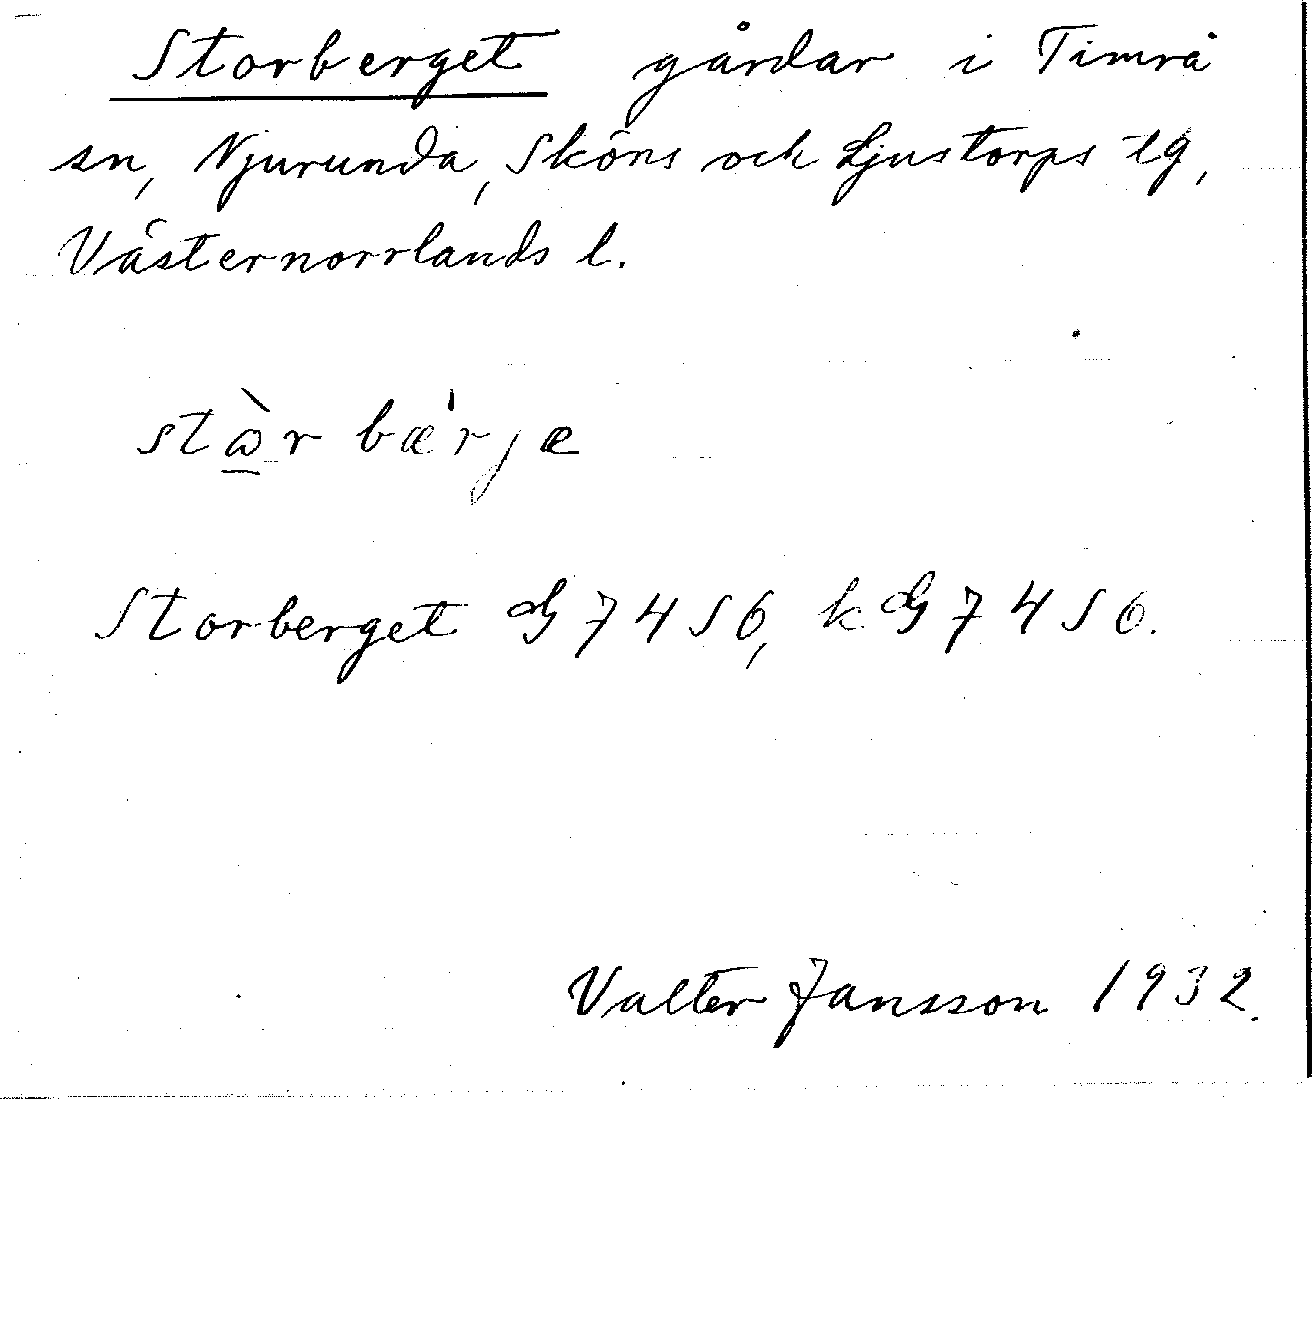 Storberget gårdar i Timrå
sn, Njurunda, Sköns och Ljustorps tg,
Västernorrlands l.
stὼ̲r bæ'rjæ
Storberget G 7456, k G 7456.
Valter Jansson 1932.